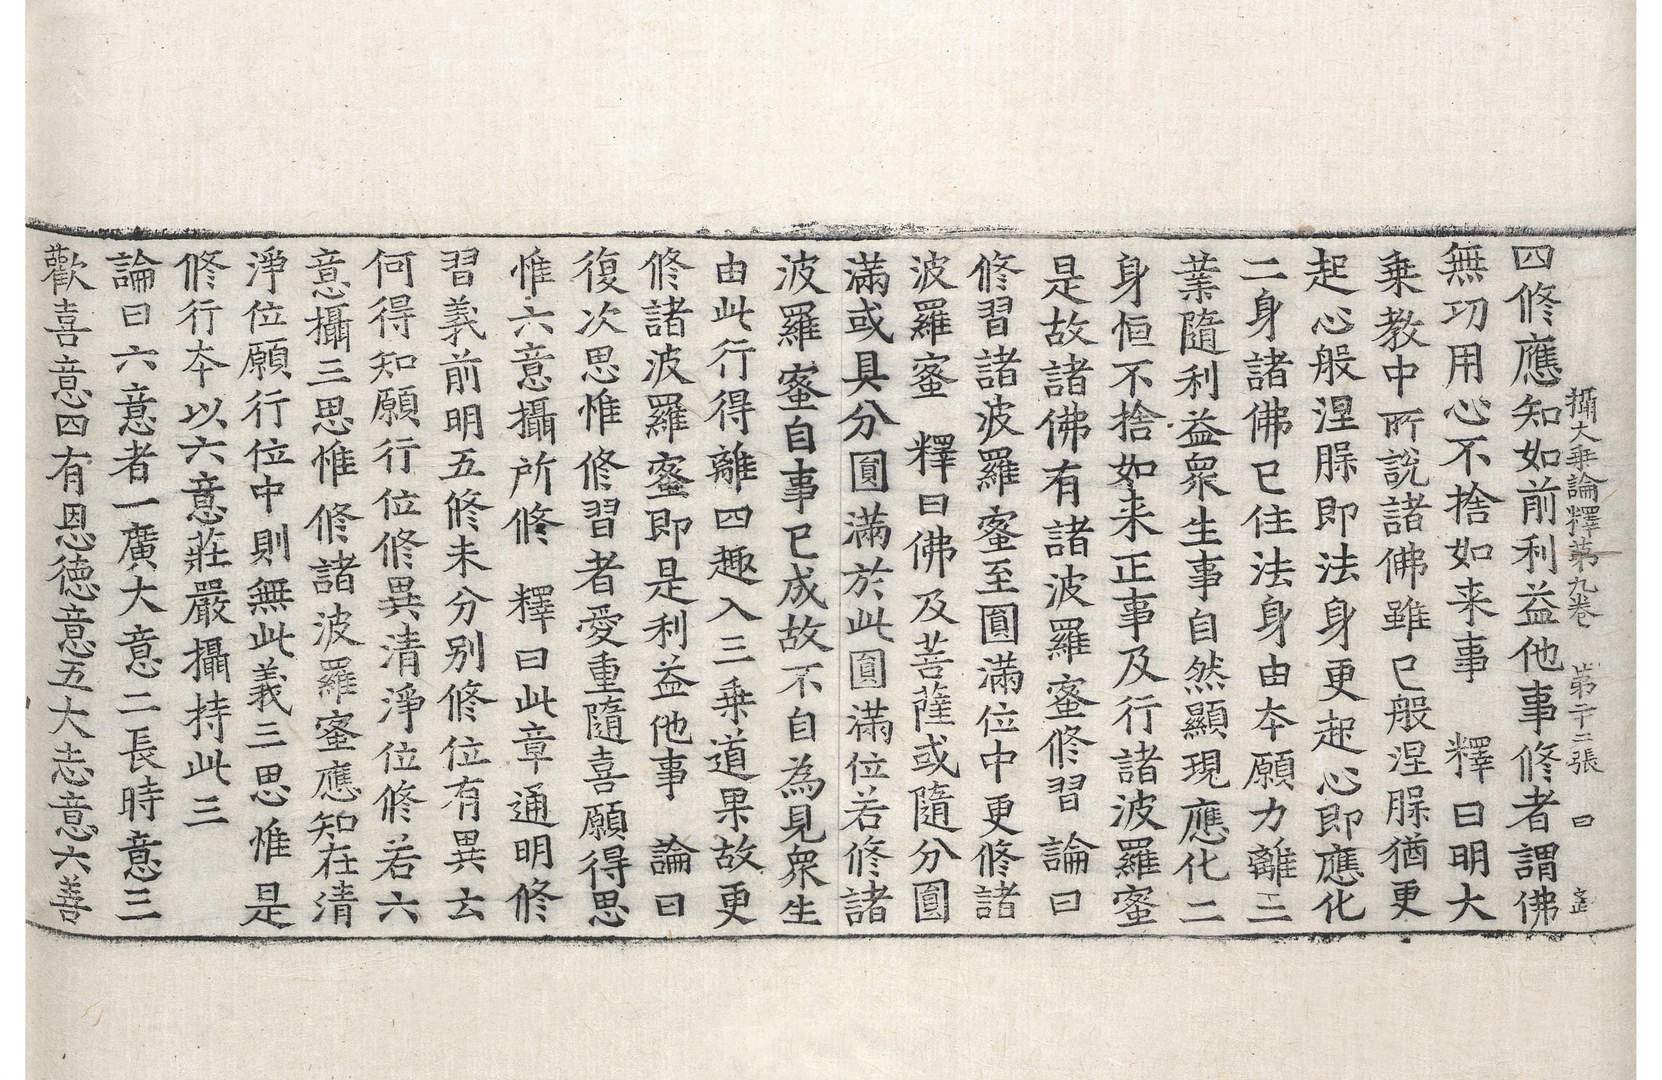 攝大乘論釋第九卷 第十二張 曰
四修應知如前利益他事修者謂佛
無功用心不捨如来事 釋曰明大
乘教中所說諸佛雖已般涅脲猶更
起心般涅脲即法身更起心即應化
二身諸佛已住法身由夲願力離三
業隨利益衆生事自然顯現應化二
身恒不捨如来正事及行諸波羅蜜
是故諸佛有諸波羅蜜修習 論曰
修習諸波羅蜜至圓滿位中更修諸
波羅蜜 釋曰佛及菩薩或隨分圓
滿或具分圓滿於此圓滿位若修諸
波羅蜜自事已成故不自為見衆生
由此行得離四趣入三乗道果故更
修諸波羅蜜即是利益他事 論曰
復次思惟修習者愛重隨喜願得思
惟六意攝所修 釋曰此章通明修
習義前明五修未分别修位有異云
何得知願行位修異清淨位修若六
意攝三思惟修諸波羅蜜應知在清
淨位願行位中則無此義三思惟是
修行夲以六意莊嚴攝持此三
論曰六意者一廣大意二長時意三
歡喜意四有恩徳意五大志意六善